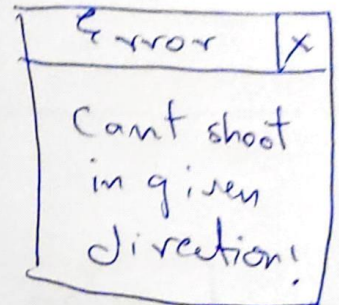 Error X
Cant shoot
in given
direction!